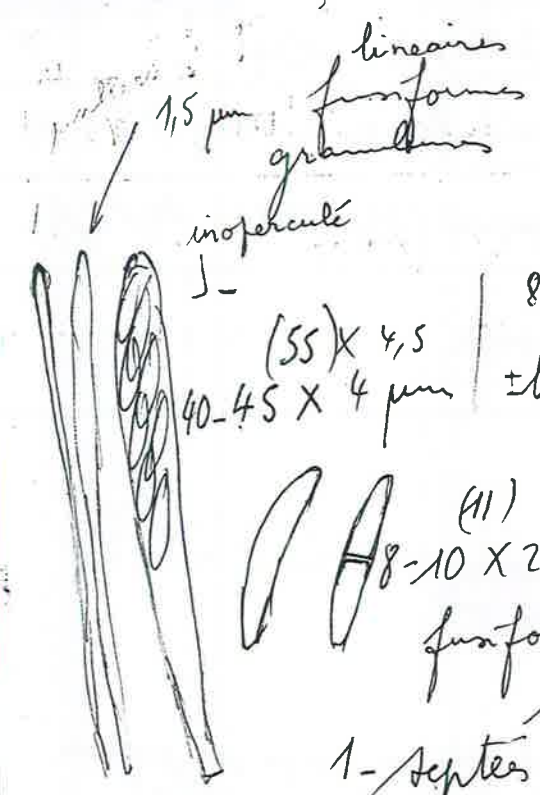 linéaires
1,5 µm fusiformes
inoperculé
J-
(55) X 4,5
40-45 X 4 µm
8
±
(11)
8-10 X 2
fusifo
1-septées